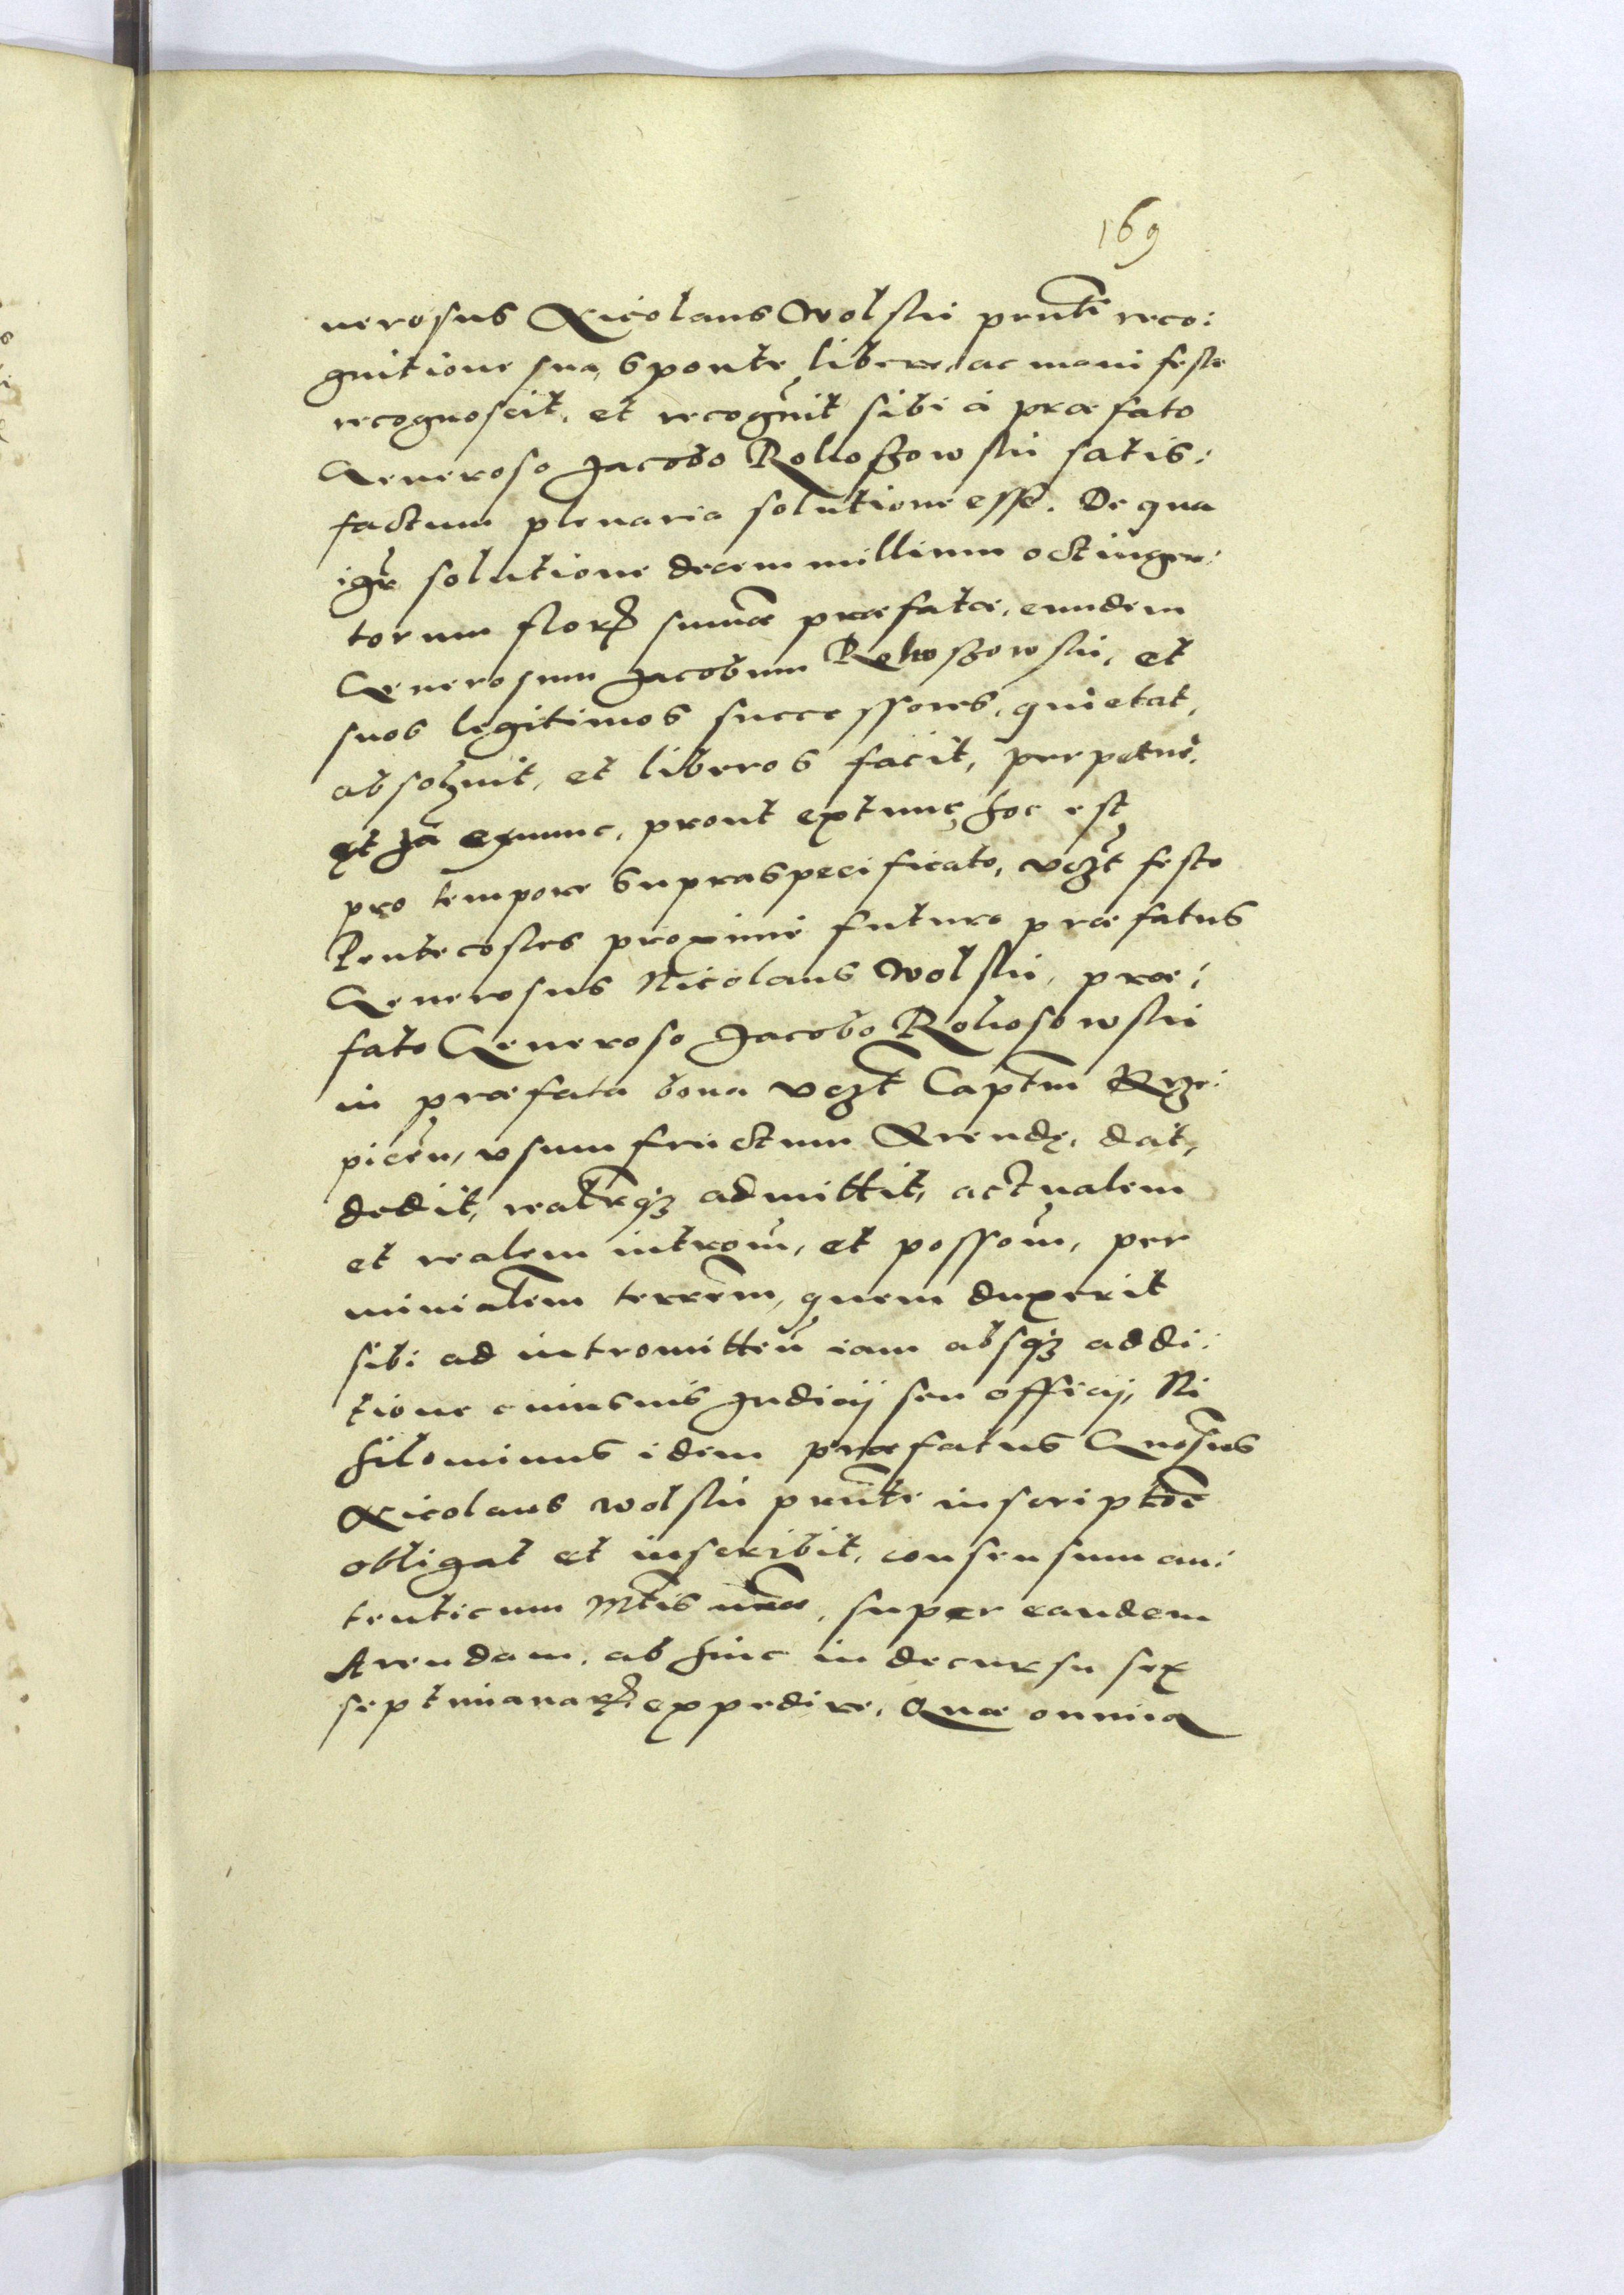 169
nerosus Nicolaus Wolski prnti reco:
gnitione sua, sponte, libere, ac manifeste
recognoscit, et recognit sibi à præfato
Generoso Jacobo Rokoszowski satis:
factum plenaria solutione esse. De qua
igr solutione decem millium octingen:
torum flor sumæ præfatæ, eundem
Generosum Jacobum Rokoszowski, et
suos legitimos successores, quietat,
absolvit, et liberos facit, perpetuè.
et Ja exnunc, prout extunc, hoc est
pro tempore supraspecificato, vczt festo
Pentecostes proximè futuro præfatus
Generosus Nicolaus Wolski, præ:
fato Generoso Jacobo Rokosowski
in præfata bona vczt Captm Rze:
picen, vsumfructum Arendę, dat,
dedit, realrqz admittit, actualem
et realem introm, et possom, per
minialem terrem, quem duxerit
sibi ad intromitten iam absqz addi:
tione cuiusuis Judicij seu officij, Ni
hilominus idem præfatus Gnosus
Nicolaus Wolski prnti inscriptoe
obligat et inscribit, consensum au:
tenticum Mtis nræ, super eandem
Arendam, ab hinc in decursu sex
septimanar expedire, Quæ omnia